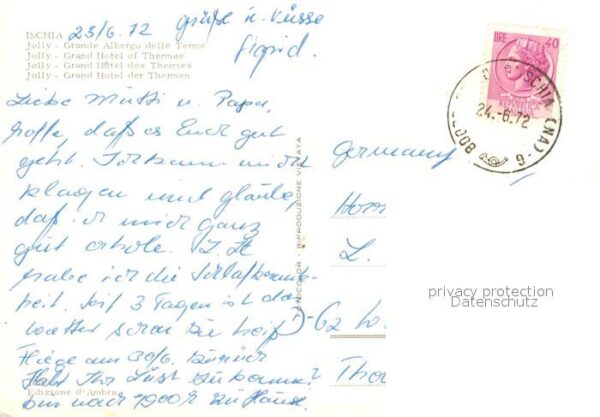 ISCHIA 23/6.72 Grüße u. Küsse
Jolly - Grande Albergo delle Terme
Jolly - Grand Hotel of Thermae
Jolly - Grand Hôtel des Thermes
Jolly - Grand Hotel der Thermen
Sigrid.
Liebe Mutti u. Papa,
hoffe, daß es Euch gut
geht. Ich kann nicht
klagen und glaube,
daß ich mich ganz
gut erhole. Z. Zt.
habe ich die Schlafkrank-
heit. Seit 3 Tagen ist das
Wetter schon zu heiß
Fliege am 30/6. zurück
Habt Ihr Lust zu kommen?
bin nach 1900h zu Hause.
Edizione d'Ambra
RIPRODUZIONE VIETATA
LIRE 40
ISCHIA (NA)
24.-6.72
Germany
L.
privacy protection
Datenschutz